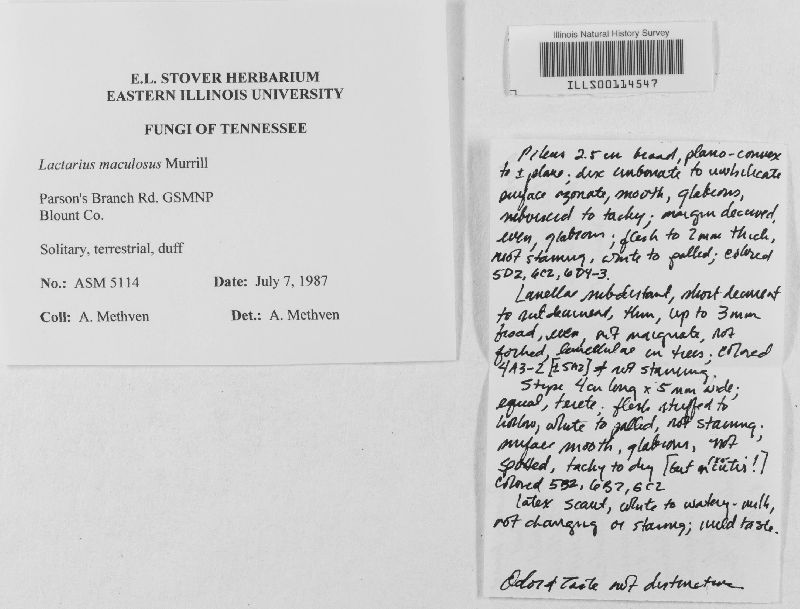 E.L. STOVER HERBARIUM
EASTERN ILLINOIS UNIVERSITY
FUNGI OF TENNESSEE
Lactarius maculosus Murrill
Parson's Branch Rd. GSMNP
Blount Co.
Solitary, terrestrial, duff
No.: ASM 5114 Date: July 7, 1987
Coll: A. Methven Det.: A. Methven
Illinois Natural History Survey
ILLS00114547
Pileus 2.5 cm broad, plano-convex
to ± plane; disc umbonate to umbilicate
surface azonate, smooth, glabrous,
subviscid to tacky; margin decurved,
even, glabrous; flesh to 2 mm thick,
not staining, white to pallid; colored
5D2, 6C2, 6D4-3.
Lamellae subdistant, short decurrent
to subdecurrent, thin, up to 3 mm
broad, even not marginate, not
forked, lamellulae in tiers; colored
4A3-2 [±5A2] & not staining.
Stipe 4 cm long x 5 mm wide;
equal, terete; flesh stuffed to
hollow, white to pallid, not staining.
surface smooth, glabrous, not
spotted, tacky to dry [but cutis!]
colored 5B2, 6B2, 6C2
Latex scant, white to watery-milk,
not changing or staining; mild taste.
Odor & taste not distinctive